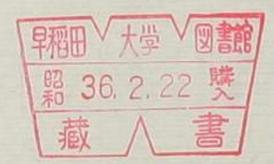 早稻田大学図書館
昭和 36.2.22 購入
蔵書